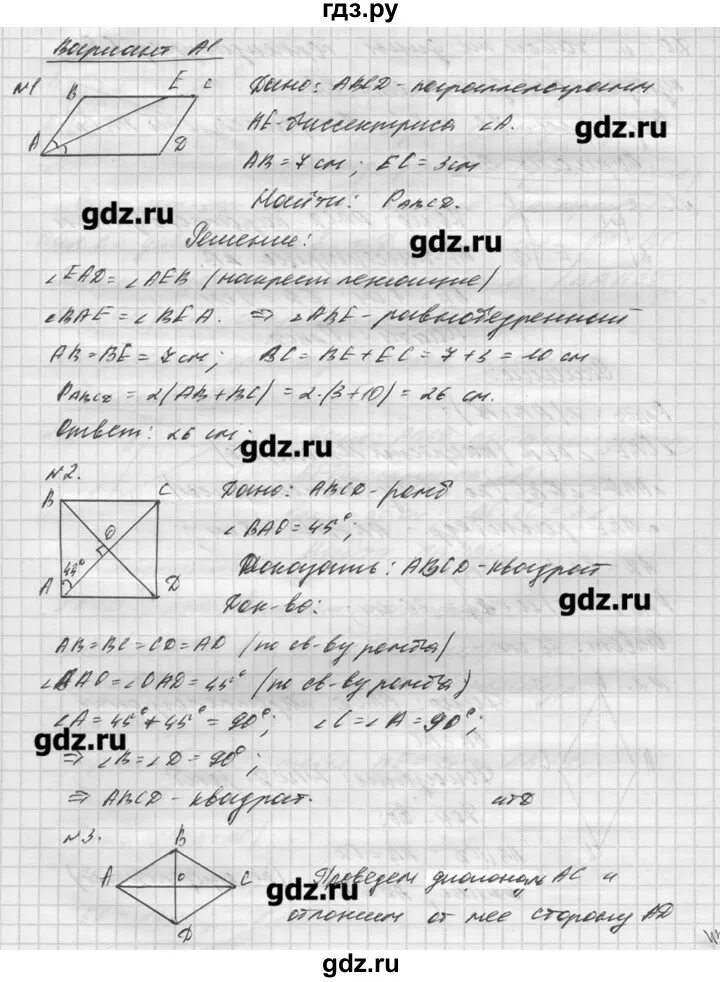 гдз.ру
Вариант А1
№1
B E C
A D
Дано: ABCD - параллелограмм
AE - биссектриса ∠A.
gdz.ru
AB = 7 см; EC = 3 см
Найти: P_ABCD.
gdz.ru
Решение:
gdz.ru
∠EAD = ∠AEB (накрест лежащие)
∠BAE = ∠BEA. ⇒ ∠ABE - равнобедренный
AB = BE = 7 см; BC = BE + EC = 7 + 3 = 10 см
P_ABCD = 2(AB + BC) = 2·(3+10) = 26 см.
Ответ: 26 см.
gdz.ru
№2.
B C
O
45°
A D
Дано: ABCD - ромб
∠BAO = 45°;
Доказать: ABCD - квадрат
Док-во:
gdz.ru
AB = BC = CD = AD (по св-ву ромба)
∠BAO = ∠OAD = 45° (по св-ву ромба)
∠A = 45° + 45° = 90°; ∠C = ∠A = 90°;
gdz.ru
⇒ ∠B = ∠D = 90°;
⇒ ABCD - квадрат. чтд
№3.
B
A O C
D
Проведем диагональ AC и
gdz.ru
отложим от нее сторону AD
gdz.ru